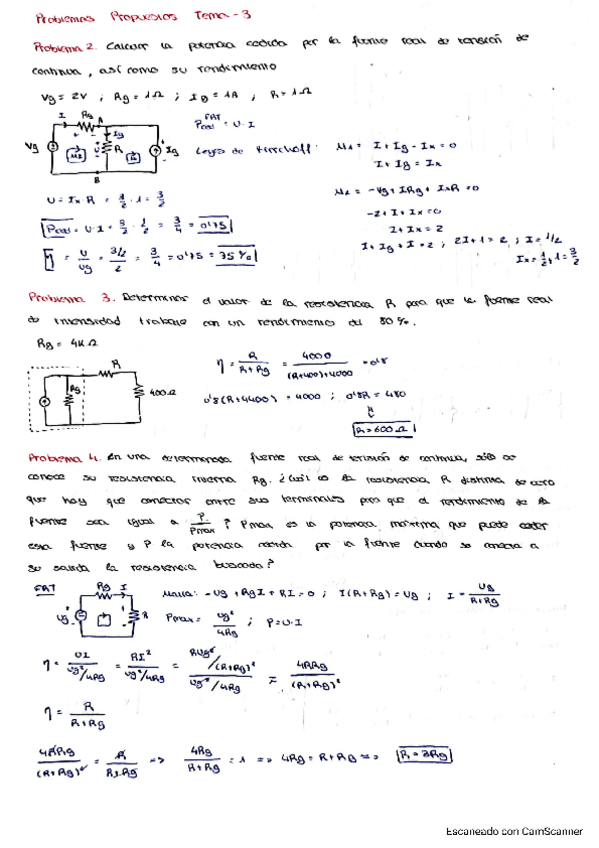 Problemas Propuestos Tema-3
Problema 2. Calcular la potencia cedida por la fuente real de tensión de
continua, así como su rendimiento
Vg = 2V ; Rg = 1Ω ; Ig = 1A ; R = 1Ω
I Rg A
Vg U R Ig Ig
M1
B
FRT
Pced = U·I
Leyes de Kirchoff:
M1 = I + Ig - Ix = 0
I + Ig = Ix
M2 = -Vg + IRg + IxR = 0
-2 + I + Ix = 0
I + Ix = 2
I + Ig + I = 2 ; 2I + 1 = 2 ; I = 1/2
Ix = 1/2 + 1 = 3/2
U = Ix·R = 3/2 · 1 = 3/2
Pced = U·I = 3/2 · 1/2 = 3/4 = 0'75
η = U/Ug = 3/2 / 2 = 3/4 = 0'75 = 75%
Problema 3. Determinar el valor de la resistencia R para que la fuente real
de intensidad trabaje con un rendimiento del 80%.
Rg = 4KΩ
R
Rg 400Ω
η = R / R+Rg = 4000 / (R+400)+4000 = 0'8
0'8(R+4400) = 4000 ; 0'8R = 480
R = 600Ω
Problema 4. En una determinada fuente real de tensión de continua, sólo se
conoce su resistencia interna Rg. ¿Cuál es la resistencia R distinta de cero
que hay que conectar entre sus terminales para que el rendimiento de la
fuente sea igual a P/Pmax? Pmax es la potencia máxima que puede ceder
esta fuente y P la potencia cedida por la fuente cuando se conecta a
su salida la resistencia buscada?
FRT Rg I
Ug R
Malla: -Ug + RgI + RI = 0 ; I(R+Rg) = Ug ; I = Ug / R+Rg
Pmax = Ug² / 4Rg ; P = U·I
η = UI / Ug²/4Rg = RI² / Ug²/4Rg = RUg²/(R+Rg)² / Ug²/4Rg = 4RRg / (R+Rg)²
η = R / R+Rg
4RRg / (R+Rg)² = R / R+Rg => 4Rg / R+Rg = 1 => 4Rg = R+Rg => R = 3Rg
Escaneado con CamScanner